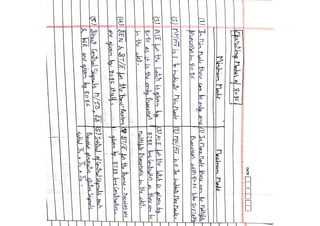 DATE
Operating Modes of 8086
Minimum Mode
Maximum Mode
(1) In Min Mode there can be only one
Processor i.e. 8086
(1) In Max Mode there can be multiple
Processors with 8086 like
(2) MN/MX is 1 to indicate Min Mode
(2) MN/MX is 0 to indicate Max Mode
(3) ALE for the latch is given by
8086 as it is the only Processor
in the ckt.
(3) ALE for the latch is given by
8288 bus controller as there can be
multiple Processors in the ckt.
(4) DEN & DT/R for the
are given by 8086 itself.
(4) DEN & DT/R for the
given by 8288 bus controller
(5) Direct Control Signals M/IO, RD
& WR are given by 8086
(5) Instead of Control Signals, each
Processor generates status signals
called S2, S1 & S0